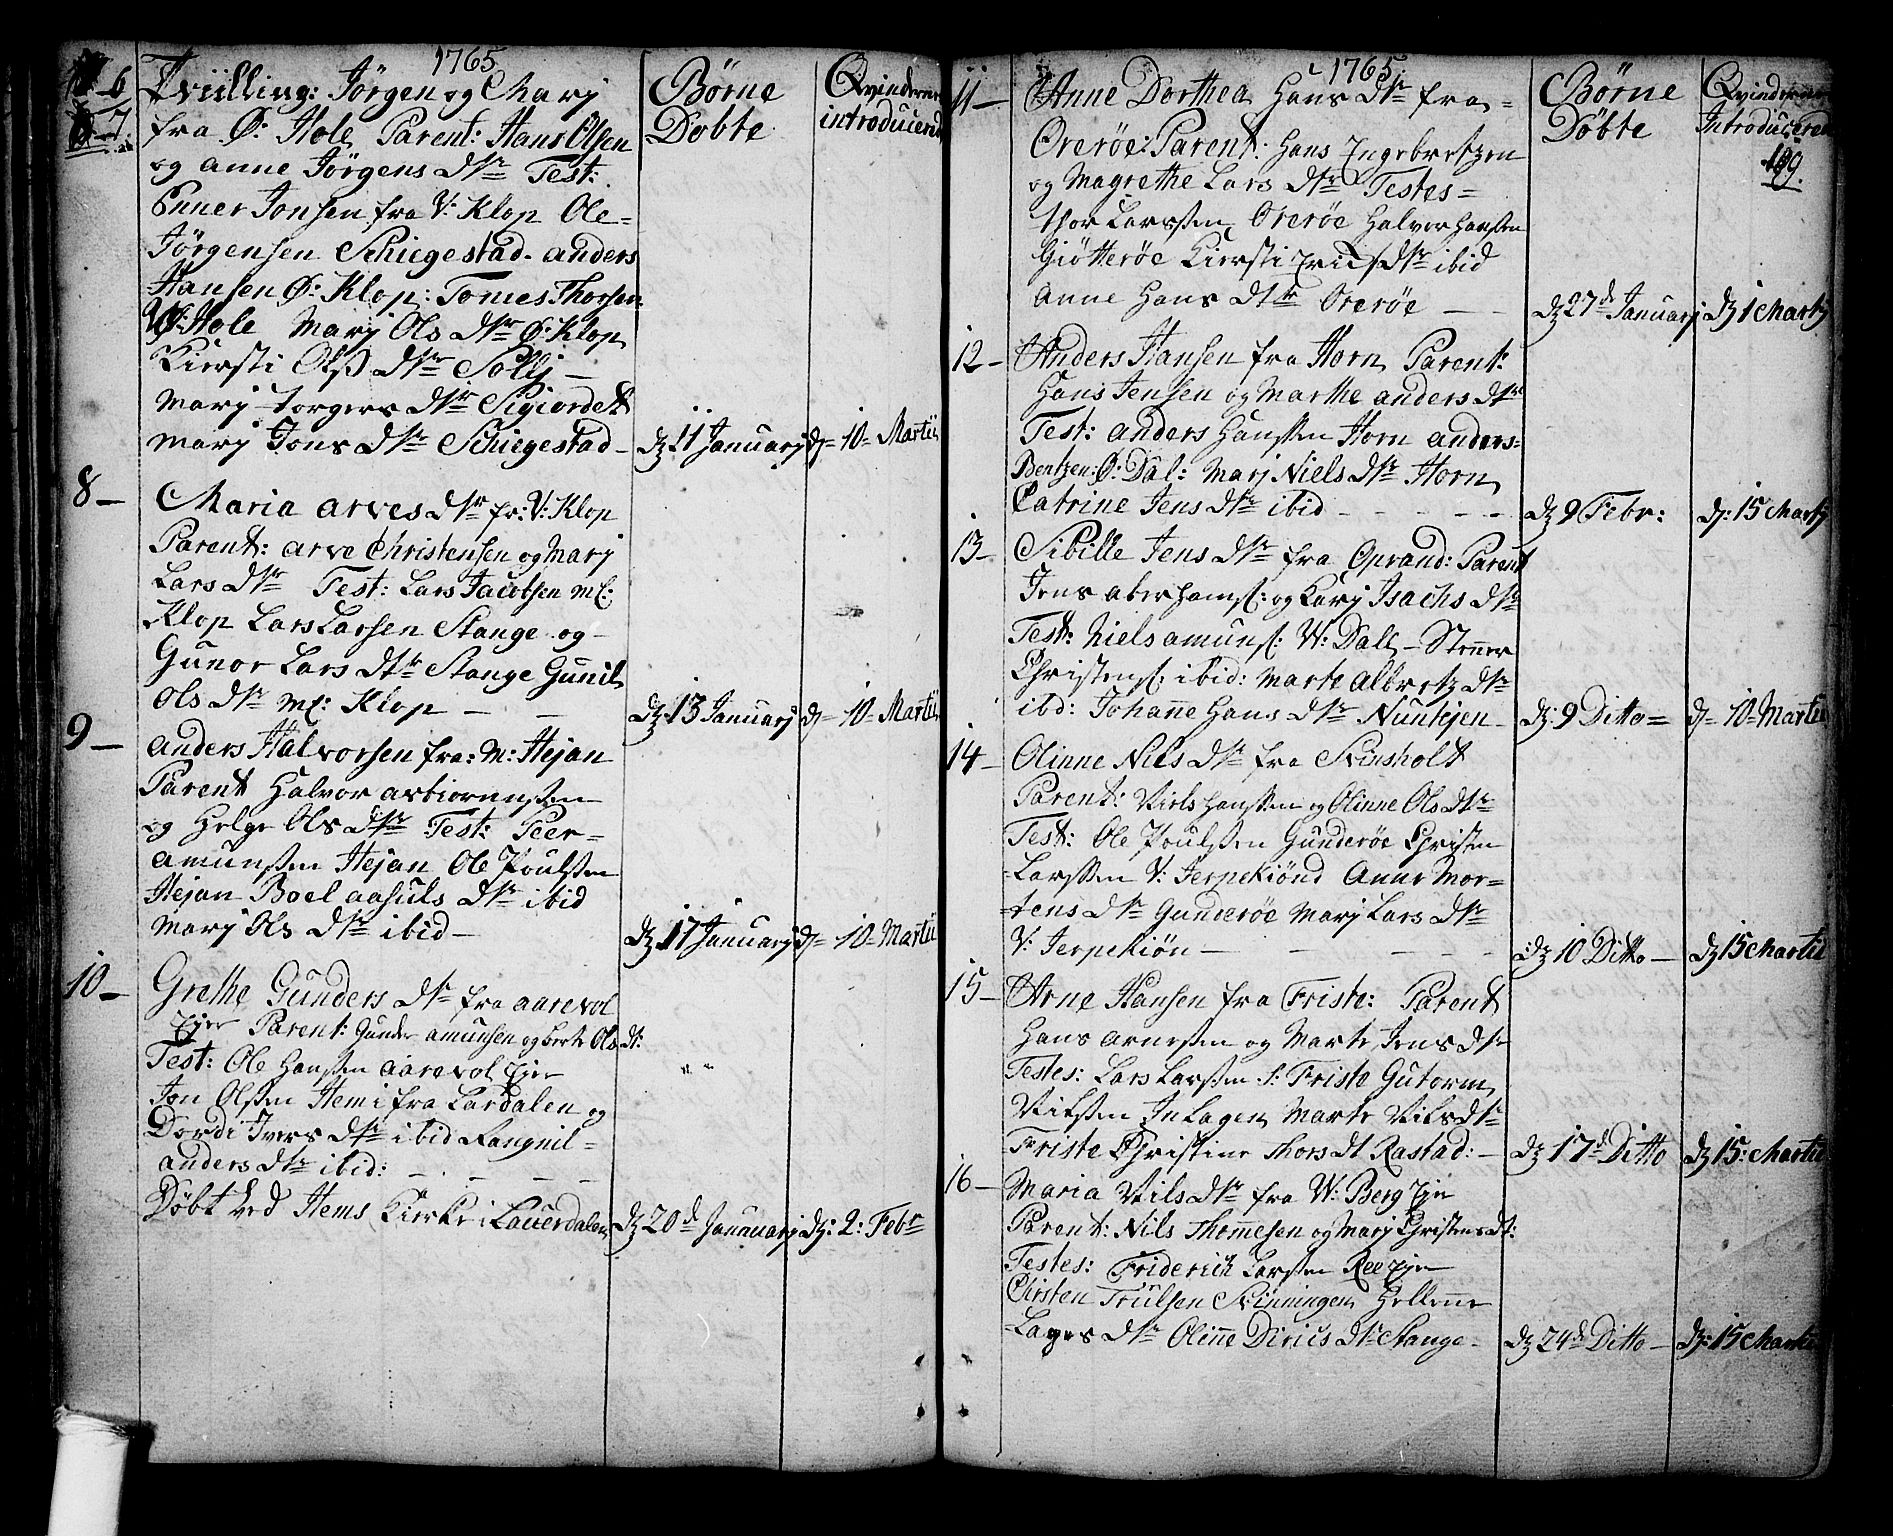 1765
6
7
Tvilling: Jörgen og Marj
fra Ø: Hole Parent: Hans Olsen
og anne Jörgens Dtr Test:
Enner Jonsen fra V: Klop Ole
Jörgensen Schiegestad. anders
Hansen Ø: Klop: Tomes Thorsen
Hole Marj Ols Dtr Ø: Klop
Kiersti Ols Dtr Sollj
Marj Torgers Dtr
Marj Jons Dtr Schiegestad
Börne
Döbte
Qvinderne
introducered
Dz 11 Januarj
d= 10= Martii
8 Maria arves Dtr fr: V: Klop
Parent: arve Christensen og Marj
Lars Dtr Test: Lars Jacobsen ml:
Klop Lars Larsen Stange og
Gunor Lars Dtr Stange Gunil
Ols Dtr ml: Klop
Dz 13 Januarj
d= 10= Martii
9 anders Halvorsen fra: M: Hejan
Parent Halvor asbiornsen
og Helge Ols Dtr Test: Peer
amunsen Hejan Ole Poulsen
Hejan Boel aasuls Dtr ibid
Marj Ols Dtr ibid
Dz 17 Januarj
d= 10= Martii
10 Grethe Gunders Dtr fra aarevol
Ejer Parent: Gunder amunsen og berte Ols dt:
Test: Ole Hansen aarevol Ejer
Jon Olsen Hem i fra Lardalen og
Dordi Ivers Dtr ibid Rangnil
anders Dtr ibid:
Döbt ved Hems Kierke i Lauerdalen
Dz 20d Januarj
Dz: 2: Febr
1765
11 Anne Dorthea Hans Dtr fra
Oreröe: Parent: Hans Ingebretzen
og Magrethe Lars Dtr Testes=
Thor Larsen Oreröe Halvor Hansen
Giötteröe Kiersti Erics Dtr ibid
Anne Hans Dtr Oreröe
Börne
Döbte
Qvinderne
Introducered
199.
Dz 27d Januarj
Dz 1 Martj
12 Anders Hansen fra Horn Parent:
Hans Jensen og Marthe anders Dtr
Test: anders Hansen Horn anders=
Bentzen: Ø: Dal: Marj Niels Dtr Horn
Catrine Jens Dtr ibid
Dz 9 Febr:
d: 15 Martj
13 Sibille Jens Dtr fra Oprand: Parent
Jens aberhams: og Karj Isachs Dtr
Test: Niels amuns: W: Dale Stener
Christens: ibid: Marte Albretz Dtr
ibd: Johanne Hans Dtr Nunkjen
Dz: 9 Ditto=
d= 10= Martii
14 Olinne Nils Dtr fra Svinsholt
Parent: Niels Hansen og Olinne Ols Dtr
Test: Ole Poulsen Gunderöe Christen
Larsen V: Jerpekiönd Anne Mor=
tens Dtr Gunderöe Marj Lars Dtr
V: Jerpekiön
Dz 10 Ditto
Dz 15 Martii
15 Arne Hansen fra Friste: Parent
Hans arnesen og Marte Jens Dtr
Testes: Lars Larsen S: Friste Gutorm
Nilsen In Lagen Marte Nils Dtr
Friste Christine Thors Dt Rastad:
Dz 17d Ditto
Dz 15: Martii
16 Maria Nils Dtr fra W: Berg Eje
Parent: Nils Thommesen og Marj Christens dt:
Testes: Friderich Larsen Ree Eje
Christen Trulsen Svinningen Hellene
Lages Dtr Olinne Dirics Dtr Stange
Dz 24d Ditto
Dz: 15 Martii